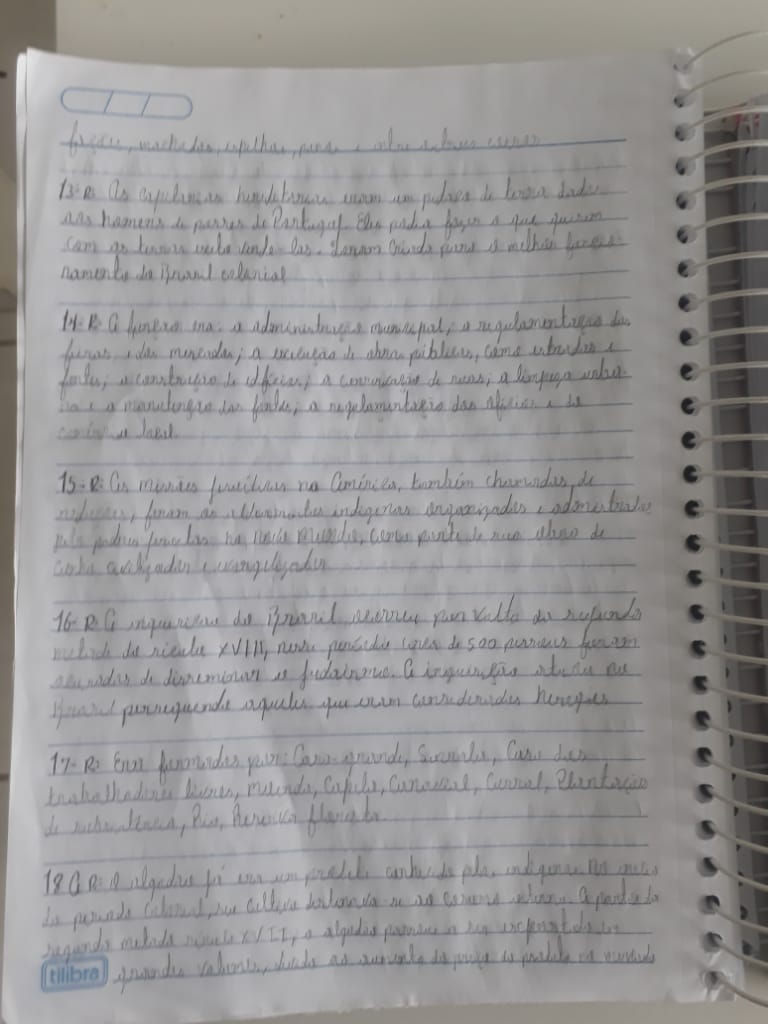 foices, machados, espelhos, pano e outro
13- R: As capitanias hereditarias eram um pedaço de terra dados
aos homens de posses de Portugal. Eles podia fazer o que queriam
com as terras, vende las. Foram criada para o melhor funcio-
namento do Brasil colonial
14- R: A função era: a administração municipal; a regulamentação das
feiras e dos mercados; a execução de obras públicas, como estradas e
fontes; a construção de edifícios; a conservação de ruas; a limpeza urba-
na e a manutenção das fontes; a regulamentação dos ofícios e do
comércio local.
15- R: As missões jesuíticas na América, também chamadas de
reduções, foram os aldeamentos indígenas organizados e administrados
pelo padres jesuítas no novo mundo, como parte de sua obra de
civilizador e evangelizador
16- R: A inquisicao do Brasil ocorreu por volta da segunda
metade do século XVIII, nesse periodo cerca de 500 pessoas foram
acusadas de disseminar o judaismo. A inquisição no
Brasil perseguendo aqueles que eram considerados hereges
17- R: Era formadas por: Casa-grande, Senzala, Casa dos
trabalhadores livres, Moenda, Capela, Canavial, Curral, Plantação
de subsistência, Rio, floresta.
18 A R: O algodão já era um produto conhecido pelo indigena. No inicio
do periodo Colonial, seu cultivo destinava-se ao consumo interno. A partir da
segunda metade século XVII, o algodão passou a ser exportado em
grandes volumes, devido ao aumento do preço do produto no mercado
tilibra